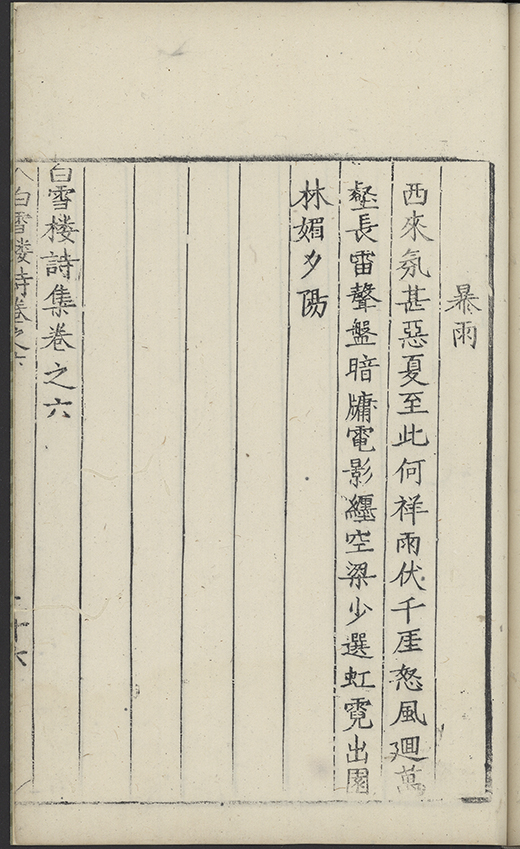 暴雨
西來氛甚惡夏至此何祥雨伏千厓怒風迴萬
壑長雷聲盤暗牗電影纏空梁少選虹霓出園
林媚夕陽
白雪楼詩集卷之六
白雪楼詩卷之六
二十六